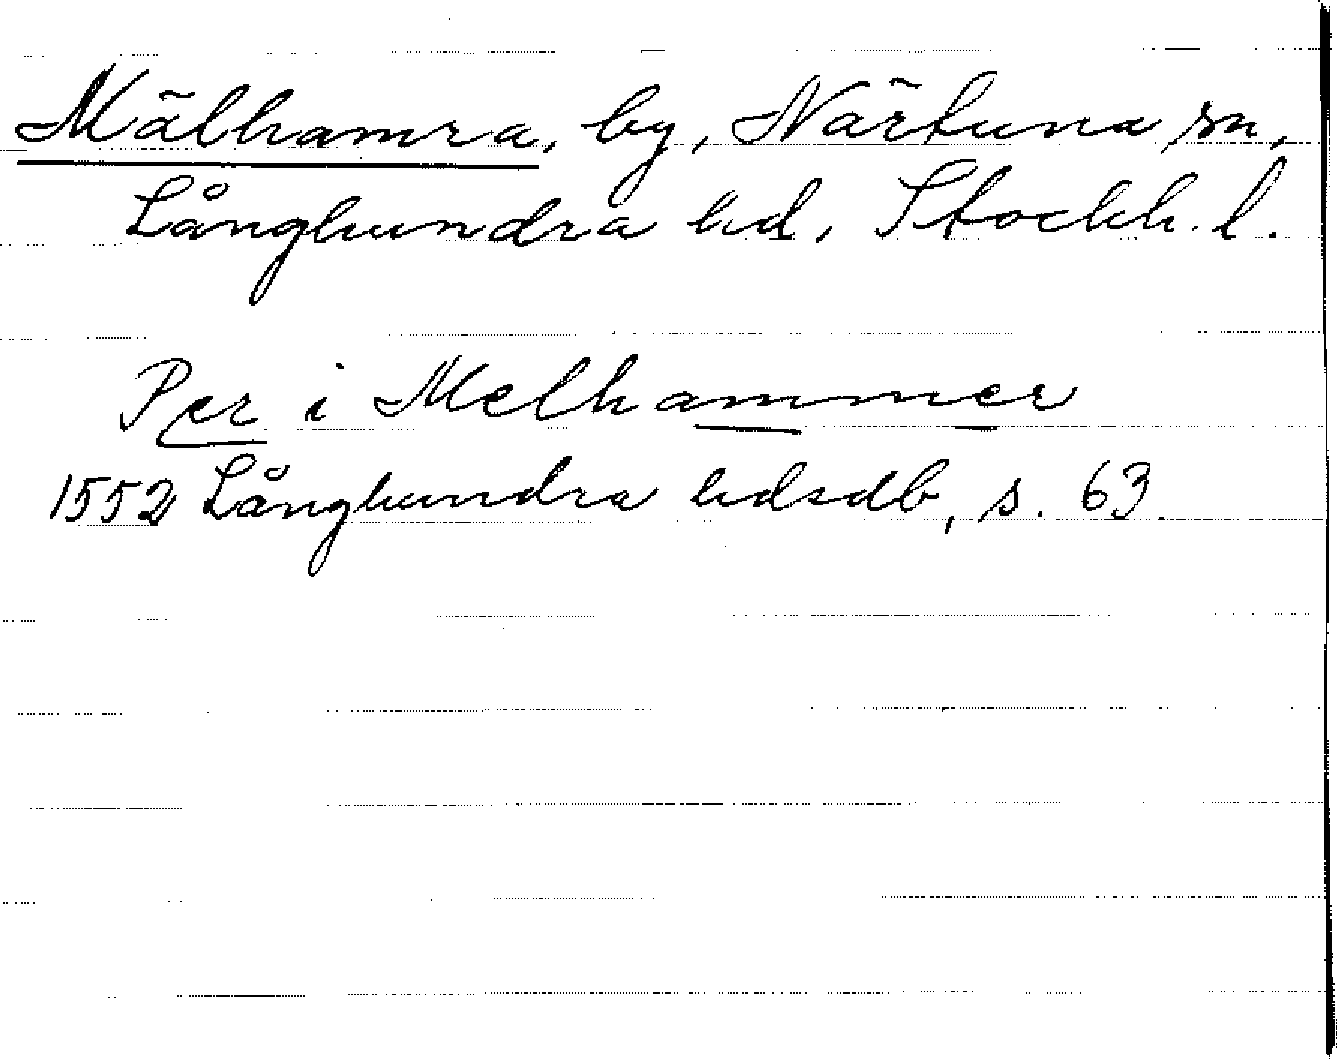 Mälhamra, by, Närtuna sn,
Långhundra hd, Stockh. l.
Per i Melhammer
1552 Långhundra hdsdb, s. 63.